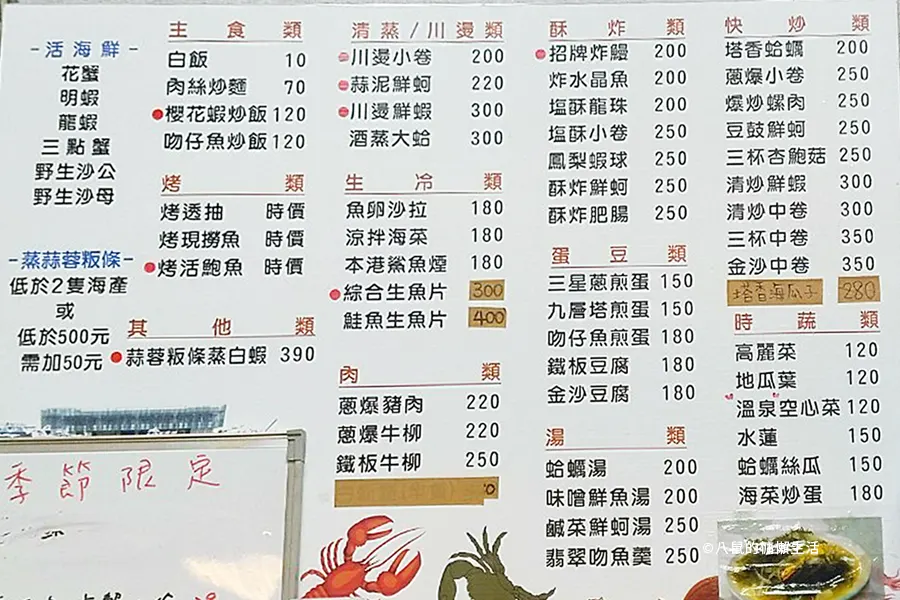 -活海鮮-
花蟹
明蝦
龍蝦
三點蟹
野生沙公
野生沙母
-蒸蒜蓉粄條-
低於2隻海產
或
低於500元
需加50元
主食類
白飯 10
肉絲炒麵 70
櫻花蝦炒飯 120
吻仔魚炒飯 120
烤類
烤透抽 時價
烤現撈魚 時價
烤活鮑魚 時價
其他類
蒜蓉粄條蒸白蝦 390
清蒸/川燙類
川燙小卷 200
蒜泥鮮蚵 220
川燙鮮蝦 300
酒蒸大蛤 300
生冷類
魚卵沙拉 180
涼拌海菜 180
本港鯊魚煙 180
綜合生魚片 300
鮭魚生魚片 400
肉類
蔥爆豬肉 220
蔥爆牛柳 220
鐵板牛柳 250
酥炸類
招牌炸鰻 200
炸水晶魚 200
塩酥龍珠 200
塩酥小卷 250
鳳梨蝦球 250
酥炸鮮蚵 250
酥炸肥腸 250
蛋豆類
三星蔥煎蛋 150
九層塔煎蛋 150
吻仔魚煎蛋 180
鐵板豆腐 180
金沙豆腐 180
湯類
蛤蠣湯 200
味噌鮮魚湯 200
鹹菜鮮蚵湯 250
翡翠吻魚羹 250
快炒類
塔香蛤蠣 200
蔥爆小卷 250
爆炒螺肉 250
豆鼓鮮蚵 250
三杯杏鮑菇 250
清炒鮮蝦 300
清炒中卷 300
三杯中卷 350
金沙中卷 350
塔香海瓜子 280
時蔬類
高麗菜 120
地瓜葉 120
溫泉空心菜 120
水蓮 150
蛤蠣絲瓜 150
海菜炒蛋 180
季節限定
©八鼠的慵懶生活